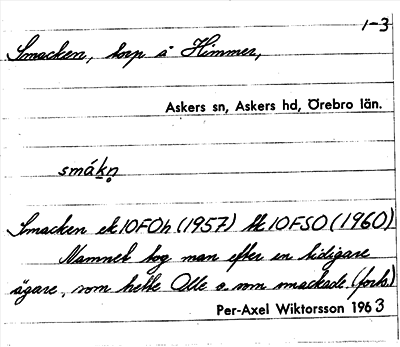 1-3
Smacken, torp å Himmer,
Askers sn, Askers hd, Örebro län.
smákn̥
Smacken ek 10FOh (1957) tk 10FSO (1960)
Namnet tog man efter en tidigare
ägare, som hette Olle o. som smackade. (forts.)
Per-Axel Wiktorsson 1963